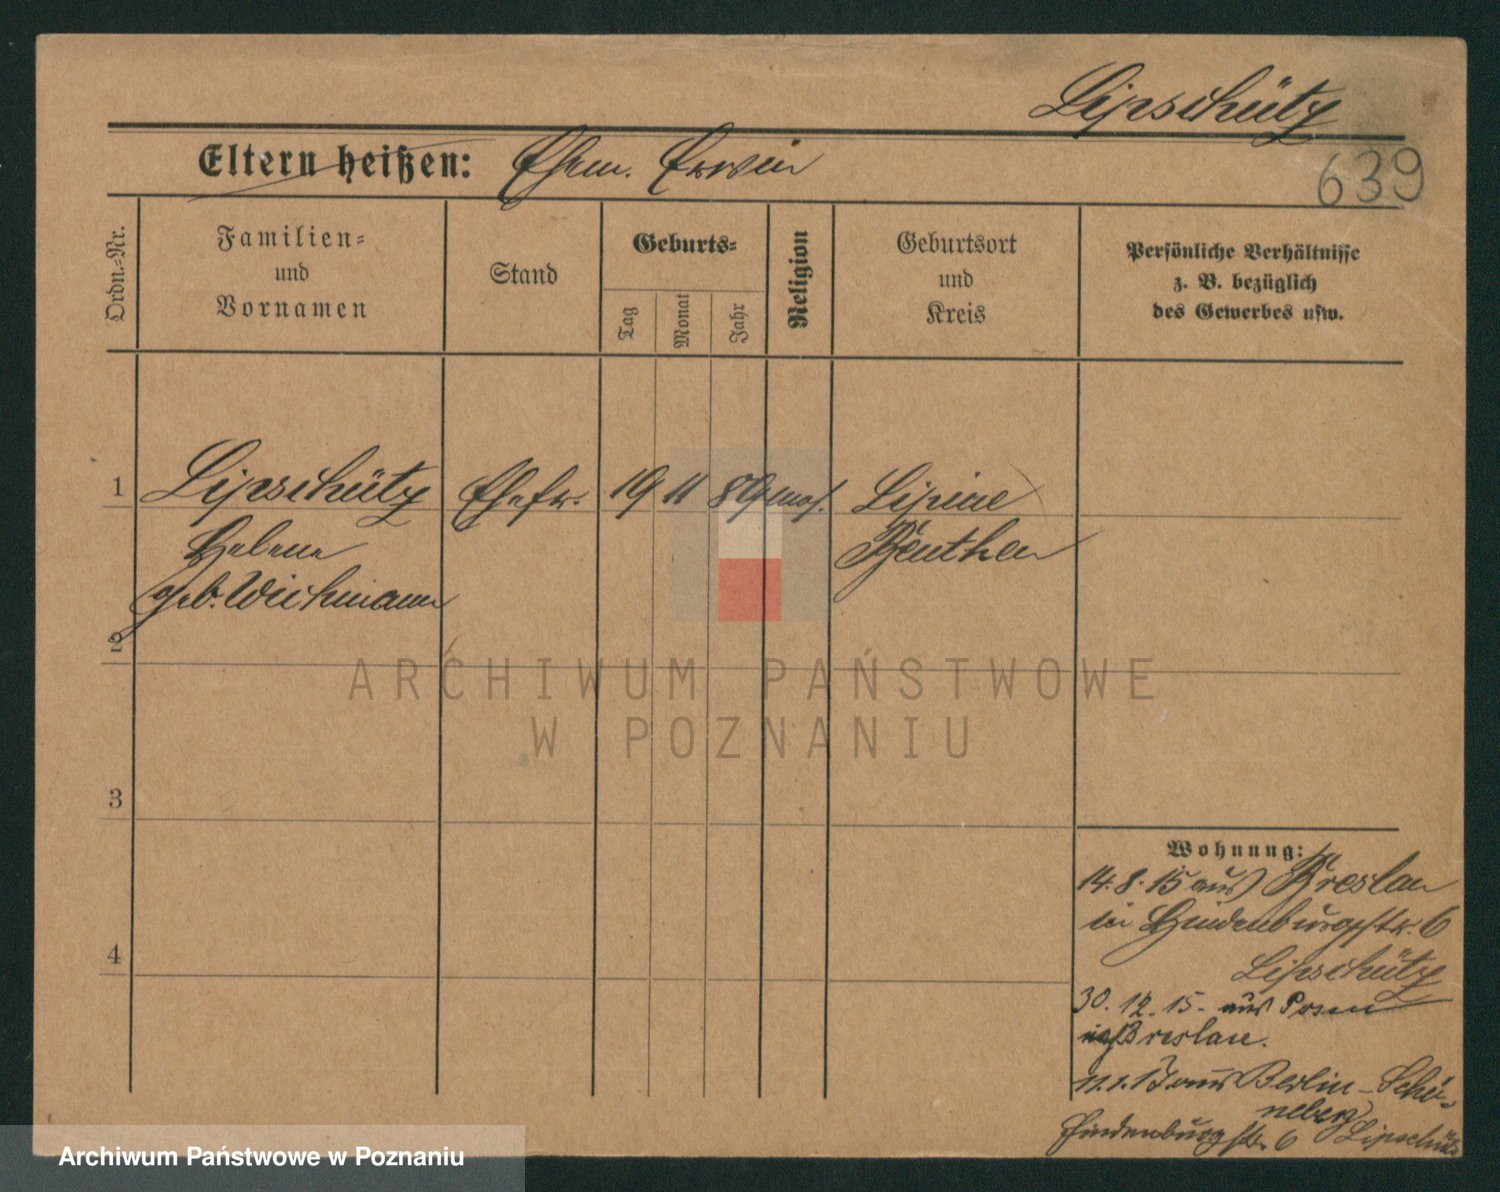 Lipschütz
Eltern heißen: Ehem. Erwin
639
Ordn.-Nr.
Familien-
und
Vornamen
Stand
Geburts-
Tag
Monat
Jahr
Religion
Geburtsort
und
Kreis
Persönliche Verhältnisse
z. B. bezüglich
des Gewerbes usw.
1 Lipschütz Ehefr. 19 11 89 mos. Lipine
Helene Beuthen
geb. Wichmann
2
ARCHIWUM PAŃSTWOWE
W POZNANIU
3
4
Wohnung:
14. 8. 15 aus Breslau
in Hindenburgstr. 6
Lipschütz
30. 12. 15. aus Posen
Breslau.
11.1.17 aus Berlin-Schö-
neberg
Hindenburgstr. 6 Lipschütz
Archiwum Państwowe w Poznaniu